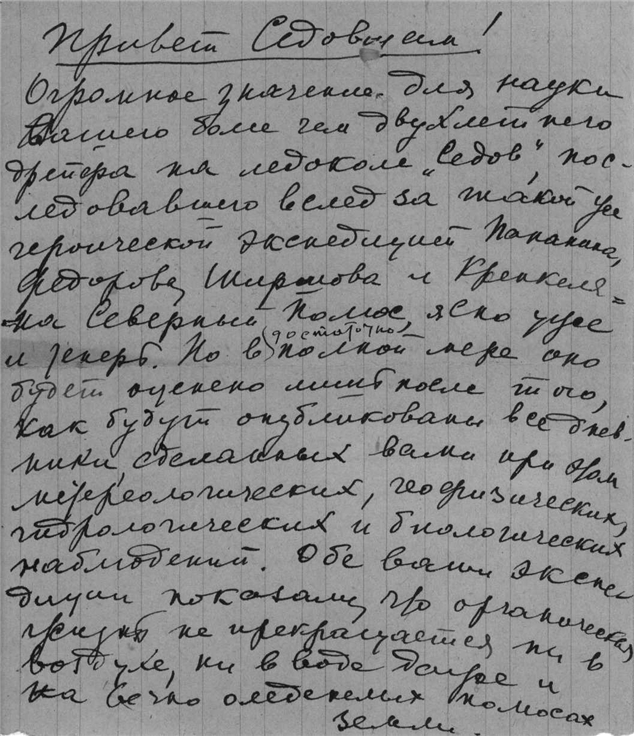 Привет Седовцам!
Огромное значение для науки
Вашего более чем двухлетнего
дрейфа на ледоколе „Седов", пос-
ледовавшего вслед за такой уже
героической экспедицией Папанина,
Федорова, Ширшова и Кренкеля=
на Северный Полюс, ясно уже
и теперь. Но в достаточно полной мере оно
будет оценено лишь после того,
как будут опубликованы все днев-
ники, сделанных вами при этом
метереологических, геофизических,
гидрологических и биологических
наблюдений. Обе ваши экспе-
диции показали, что органическая
жизнь не прекращается ни в
воздухе, ни в воде даже и
на вечно оледенелых полюсах
земли.